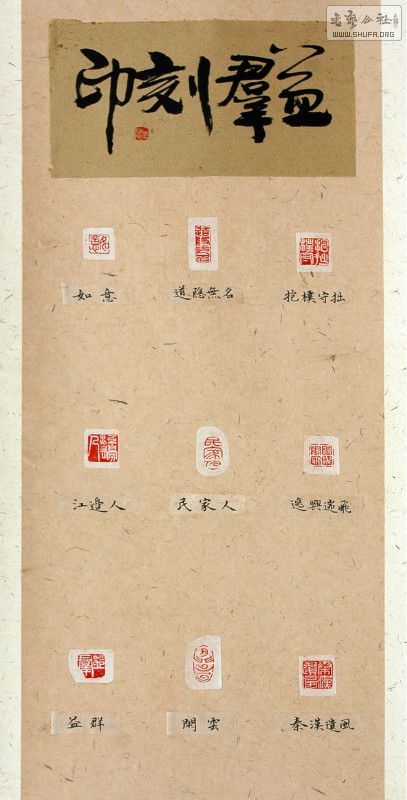 书艺公社
WWW.SHUFA.ORG
益羣刻印
如意
道隱無名
抱樸守拙
江邊人
民家人
逸興遄飛
益群
閒雲
秦漢遺風